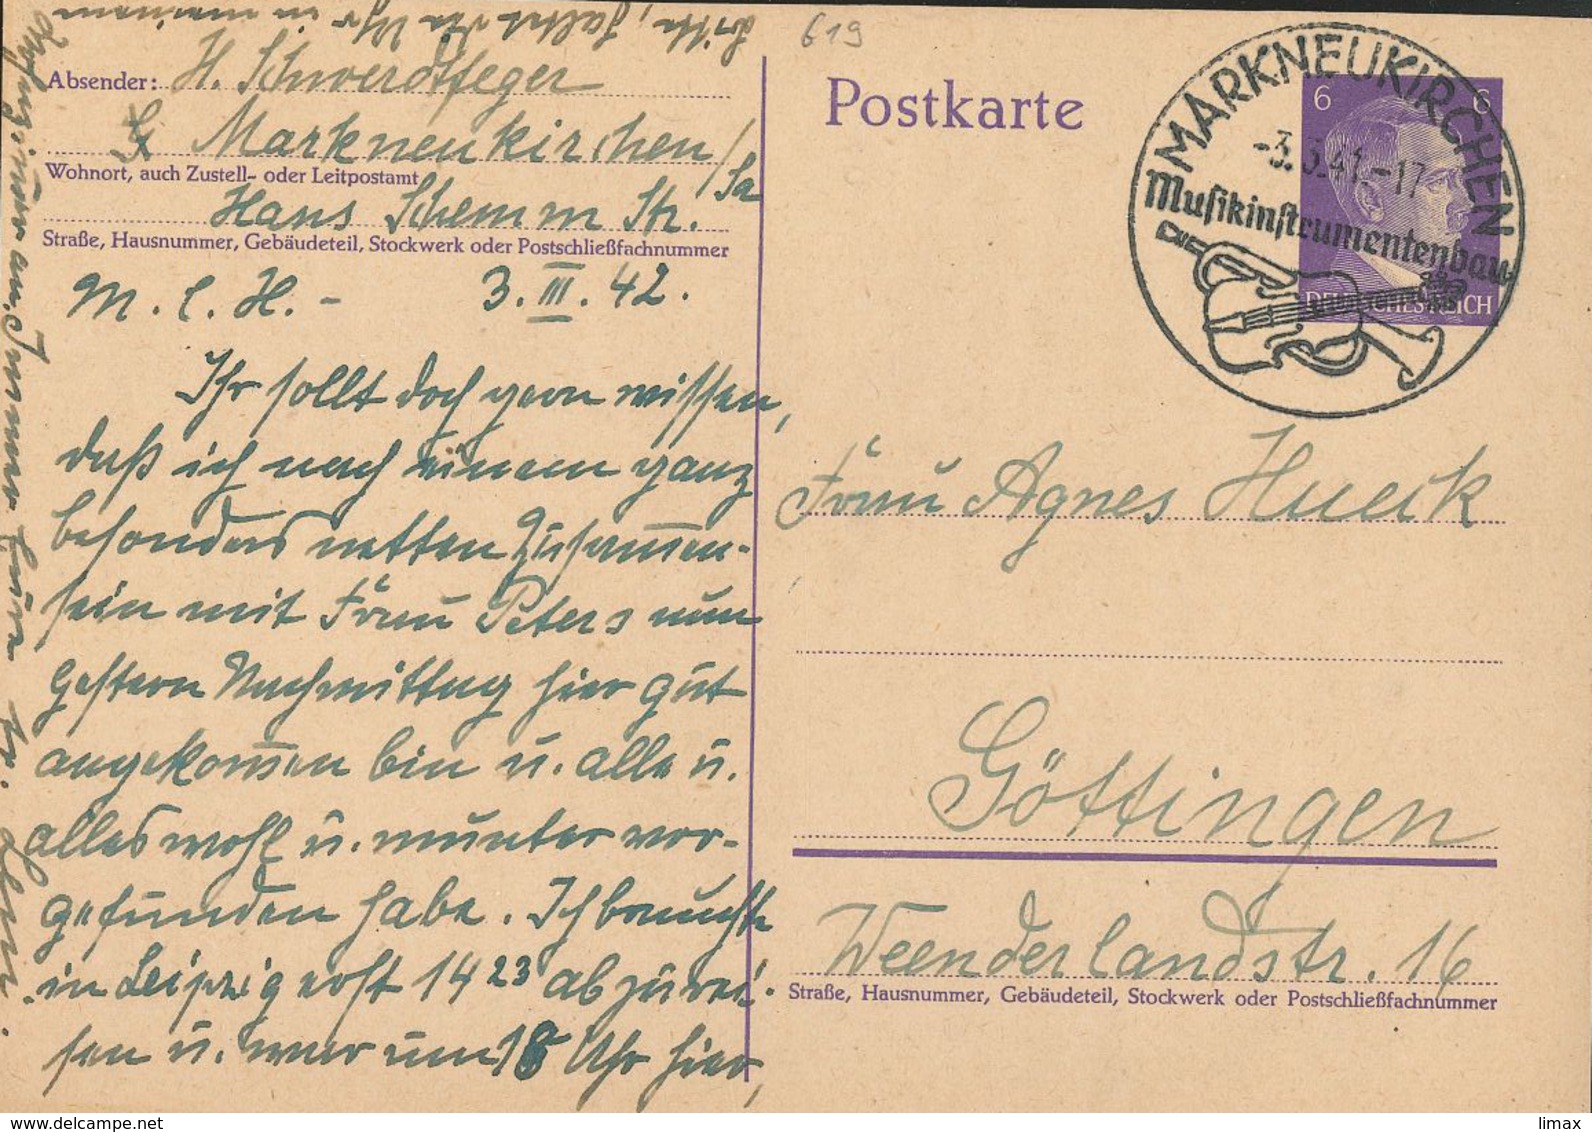 619
Absender: H. Schwerdtfeger
Markneukirchen/Sa
Wohnort, auch Zustell- oder Leitpostamt
Hans Schemm Str.
Straße, Hausnummer, Gebäudeteil, Stockwerk oder Postschließfachnummer
M. l. H. - 3. III. 42.
Ihr sollt doch gern wissen,
daß ich nach einem ganz
besonders netten Zusammen-
sein mit Frau Peters nun
gestern Nachmittag hier gut
angekommen bin u. alle u.
alles wohl u. munter vor-
gefunden habe. Ich brauchte
in Leipzig erst 14 23 abzurei-
sen u. war um 18 Uhr hier,
Bitte, faltet die Uhr in meinem
Postkarte
MARKNEUKIRCHEN
-3.3.41.-17
Musikinstrumentenbau
6 6
DEUTSCHES REICH
Frau Agnes Hueck
Göttingen
Weenderlandstr. 16
Straße, Hausnummer, Gebäudeteil, Stockwerk oder Postschließfachnummer
limax